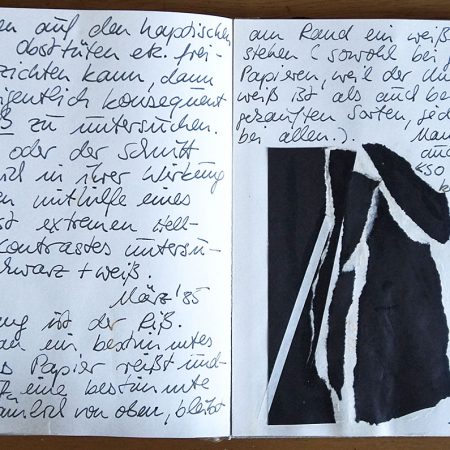 auf den haptischen
obstüten etc. frei-
zichten kann, dann
eigentlich konsequent
zu untersuchen.
oder der Schnitt
sich in ihrer Wirkung
en mithilfe eines
st extremen Hell-
kontrastes untersu-
chwarz + weiß.
März '85
ung ist der Riß.
an ein bestimmtes
s Papier reißt und
eine bestimmte
nämlich von oben, bleibt
am Rand ein weiß
stehen (sowohl bei
Papieren, weil der
weiß ist als auch be
gekauften Sorten, jed
bei allen.).
Man
auc